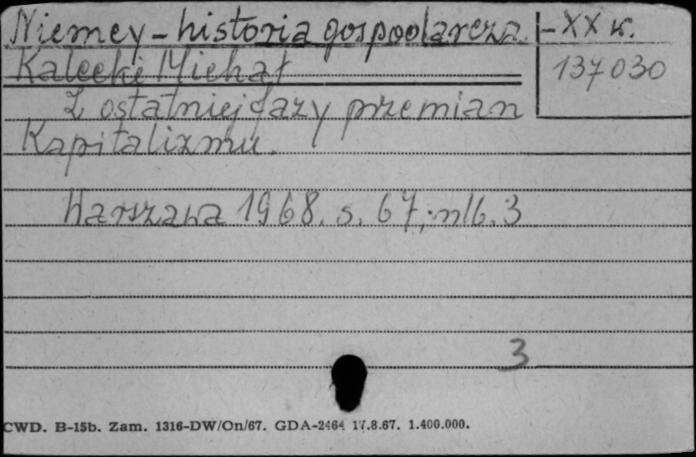 Niemcy - historia gospodarcza. - XX w.
Kalecki Michał
137030
Z ostatniej fazy przemian
Kapitalizmu.
Warszawa 1968. s. 67, nlb. 3
3
CWD. B-15b. Zam. 1316-DW/On/67. GDA-2464 17.8.67. 1.400.000.